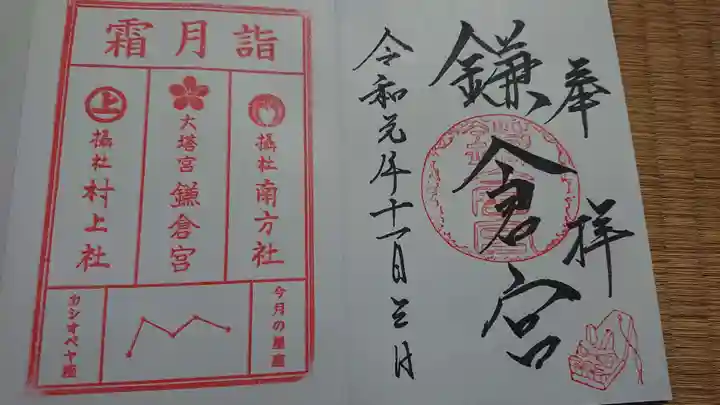 奉拝
鎌倉宮
令和元年十一月三日
霜月詣
摂社 南方社
大塔宮 鎌倉宮
上
摂社 村上社
今月の星座
カシオペヤ座